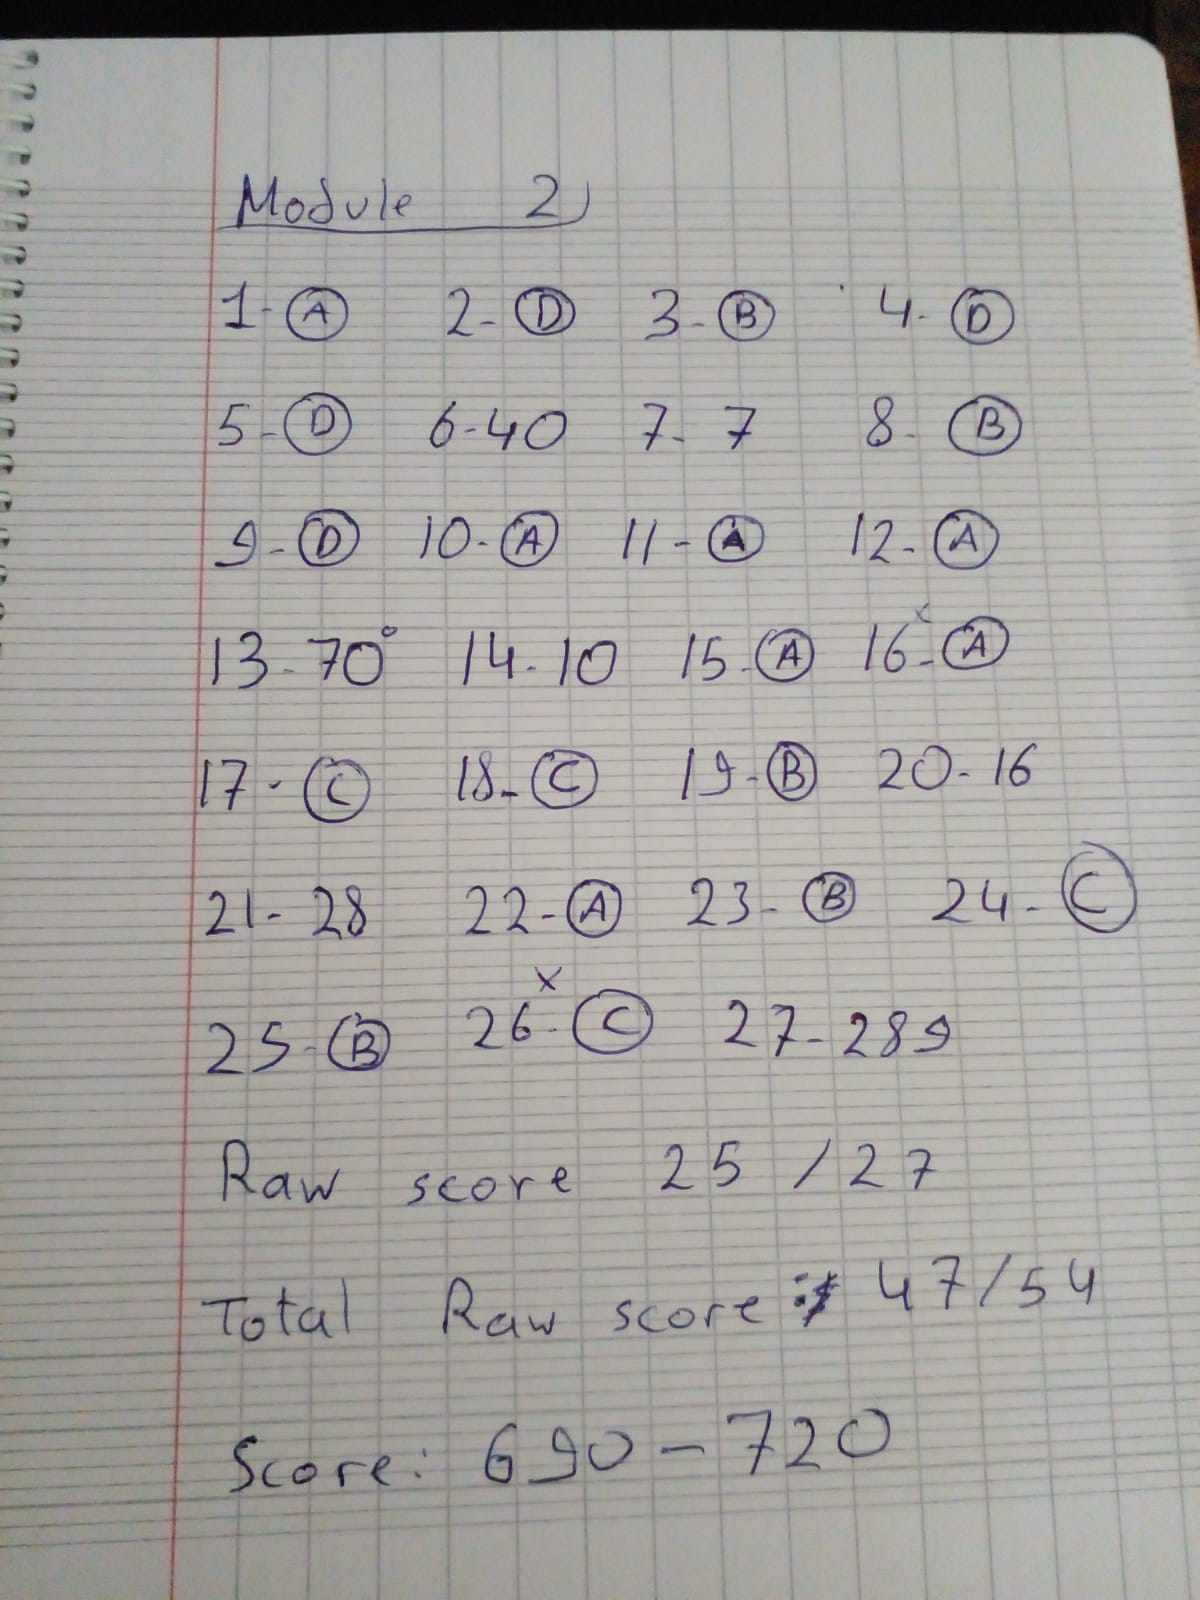 Module 2)
1- A 2- D 3- B 4- D
5- D 6- 40 7- 7 8- B
9- D 10- A 11- A 12- A
x
13- 70° 14- 10 15- A 16- A
17- C 18- C 19- B 20- 16
21- 28 22- A 23- B 24- C
x
25- B 26- C 27- 289
Raw score 25 / 27
Total Raw score : 47/54
Score: 690 - 720